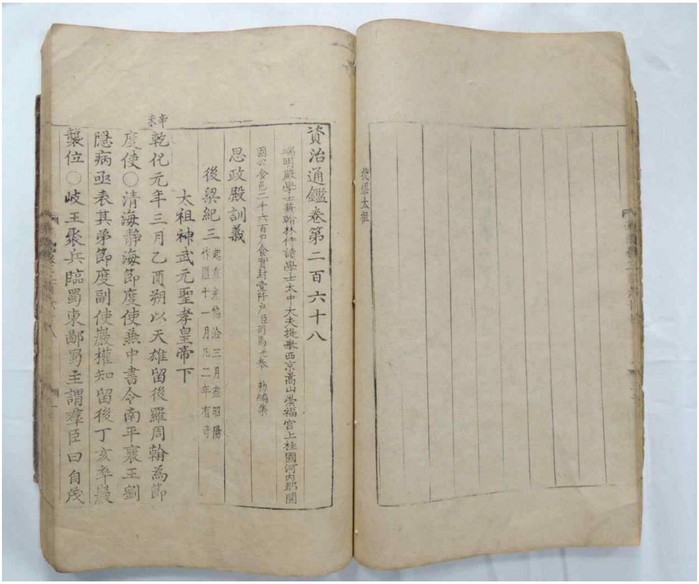 資治通鑑卷第二百六十八
端明殿學士兼翰林侍讀學士太中大夫提擧西京嵩山崇福宮上柱國河內郡開
國公食邑二千六百戶食實封壹阡戶臣司馬光奉 勑編集
思政殿訓義
後梁紀三
起重光協洽三月盡昭陽
作噩十一月凡二年有奇
太祖神武元聖孝皇帝下
辛未
乾化元年三月乙酉朔以天雄留後羅周翰為節
度使○清海靜海節度使兼中書令南平襄王劉
隱病亟表其弟節度副使巖權知留後丁亥卒巖
襲位○岐王聚兵臨蜀東鄙蜀主謂羣臣曰自茂